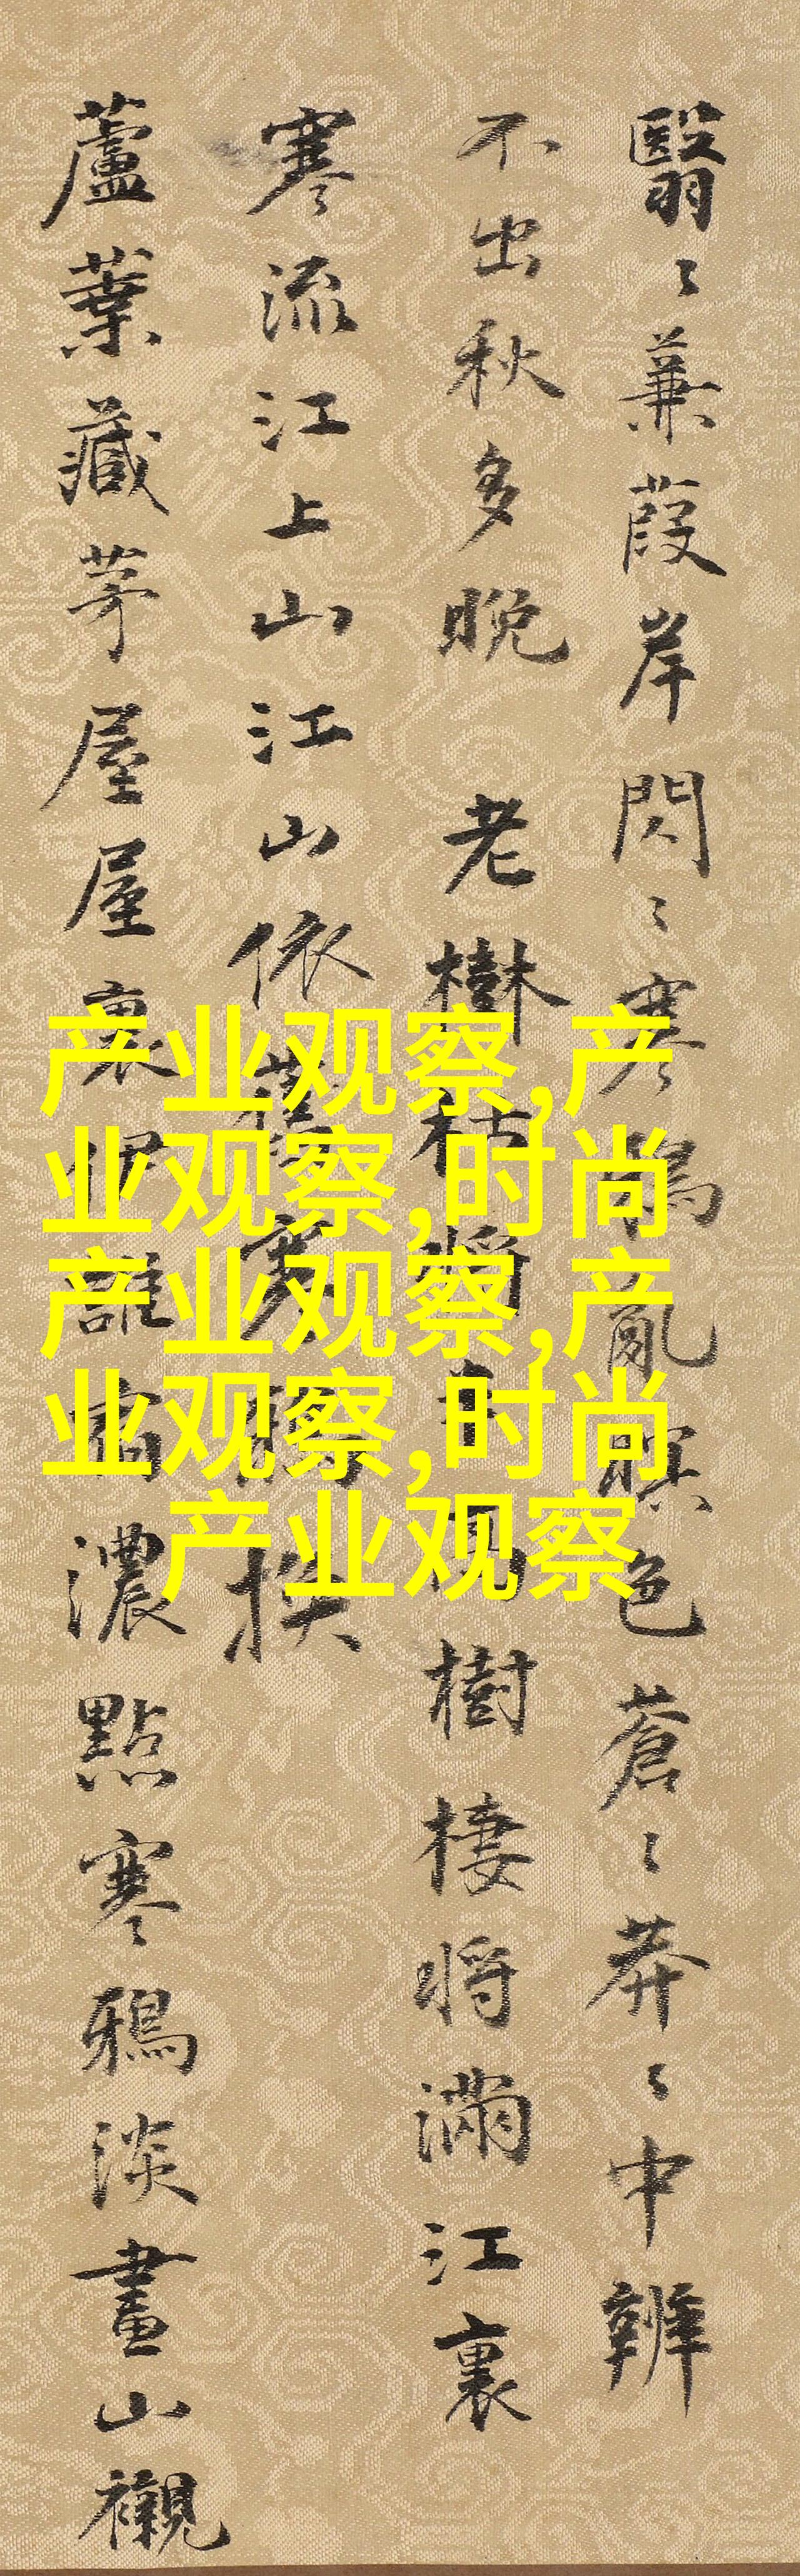 翳〻蒹葭岸閃〻寒鴉亂暝色蒼〻莽〻中辨
不出秋多晚 老樹枯將樹棲將滿江裏
寒流江上山江山依舊撲
蘆葉藏茅屋屋裏伊誰濃點寒鴉淡畫山襯
产业观察,产
业观察,时尚
产业观察,产
业观察,时尚
产业观察